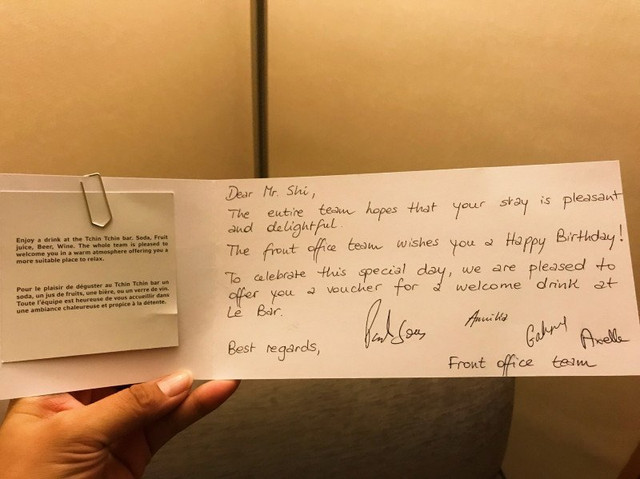 Enjoy a drink at the Tchin Tchin bar. Soda, Fruit
juice, Beer, Wine. The whole team is pleased to
welcome you in a warm atmosphere offering you a
more suitable place to relax.
Pour le plaisir de déguster au Tchin Tchin bar un
soda, un jus de fruits, une bière, ou un verre de vin.
Toute l'équipe est heureuse de vous accueillir dans
une ambiance chaleureuse et propice à la détente.
Dear Mr. Shi,
The entire team hopes that your stay is pleasant
and delightful.
The front office team wishes you a Happy Birthday!
To celebrate this special day, we are pleased to
offer you a voucher for a welcome drink at
Le Bar.
Best regards,
Annika
Axelle
Front office team